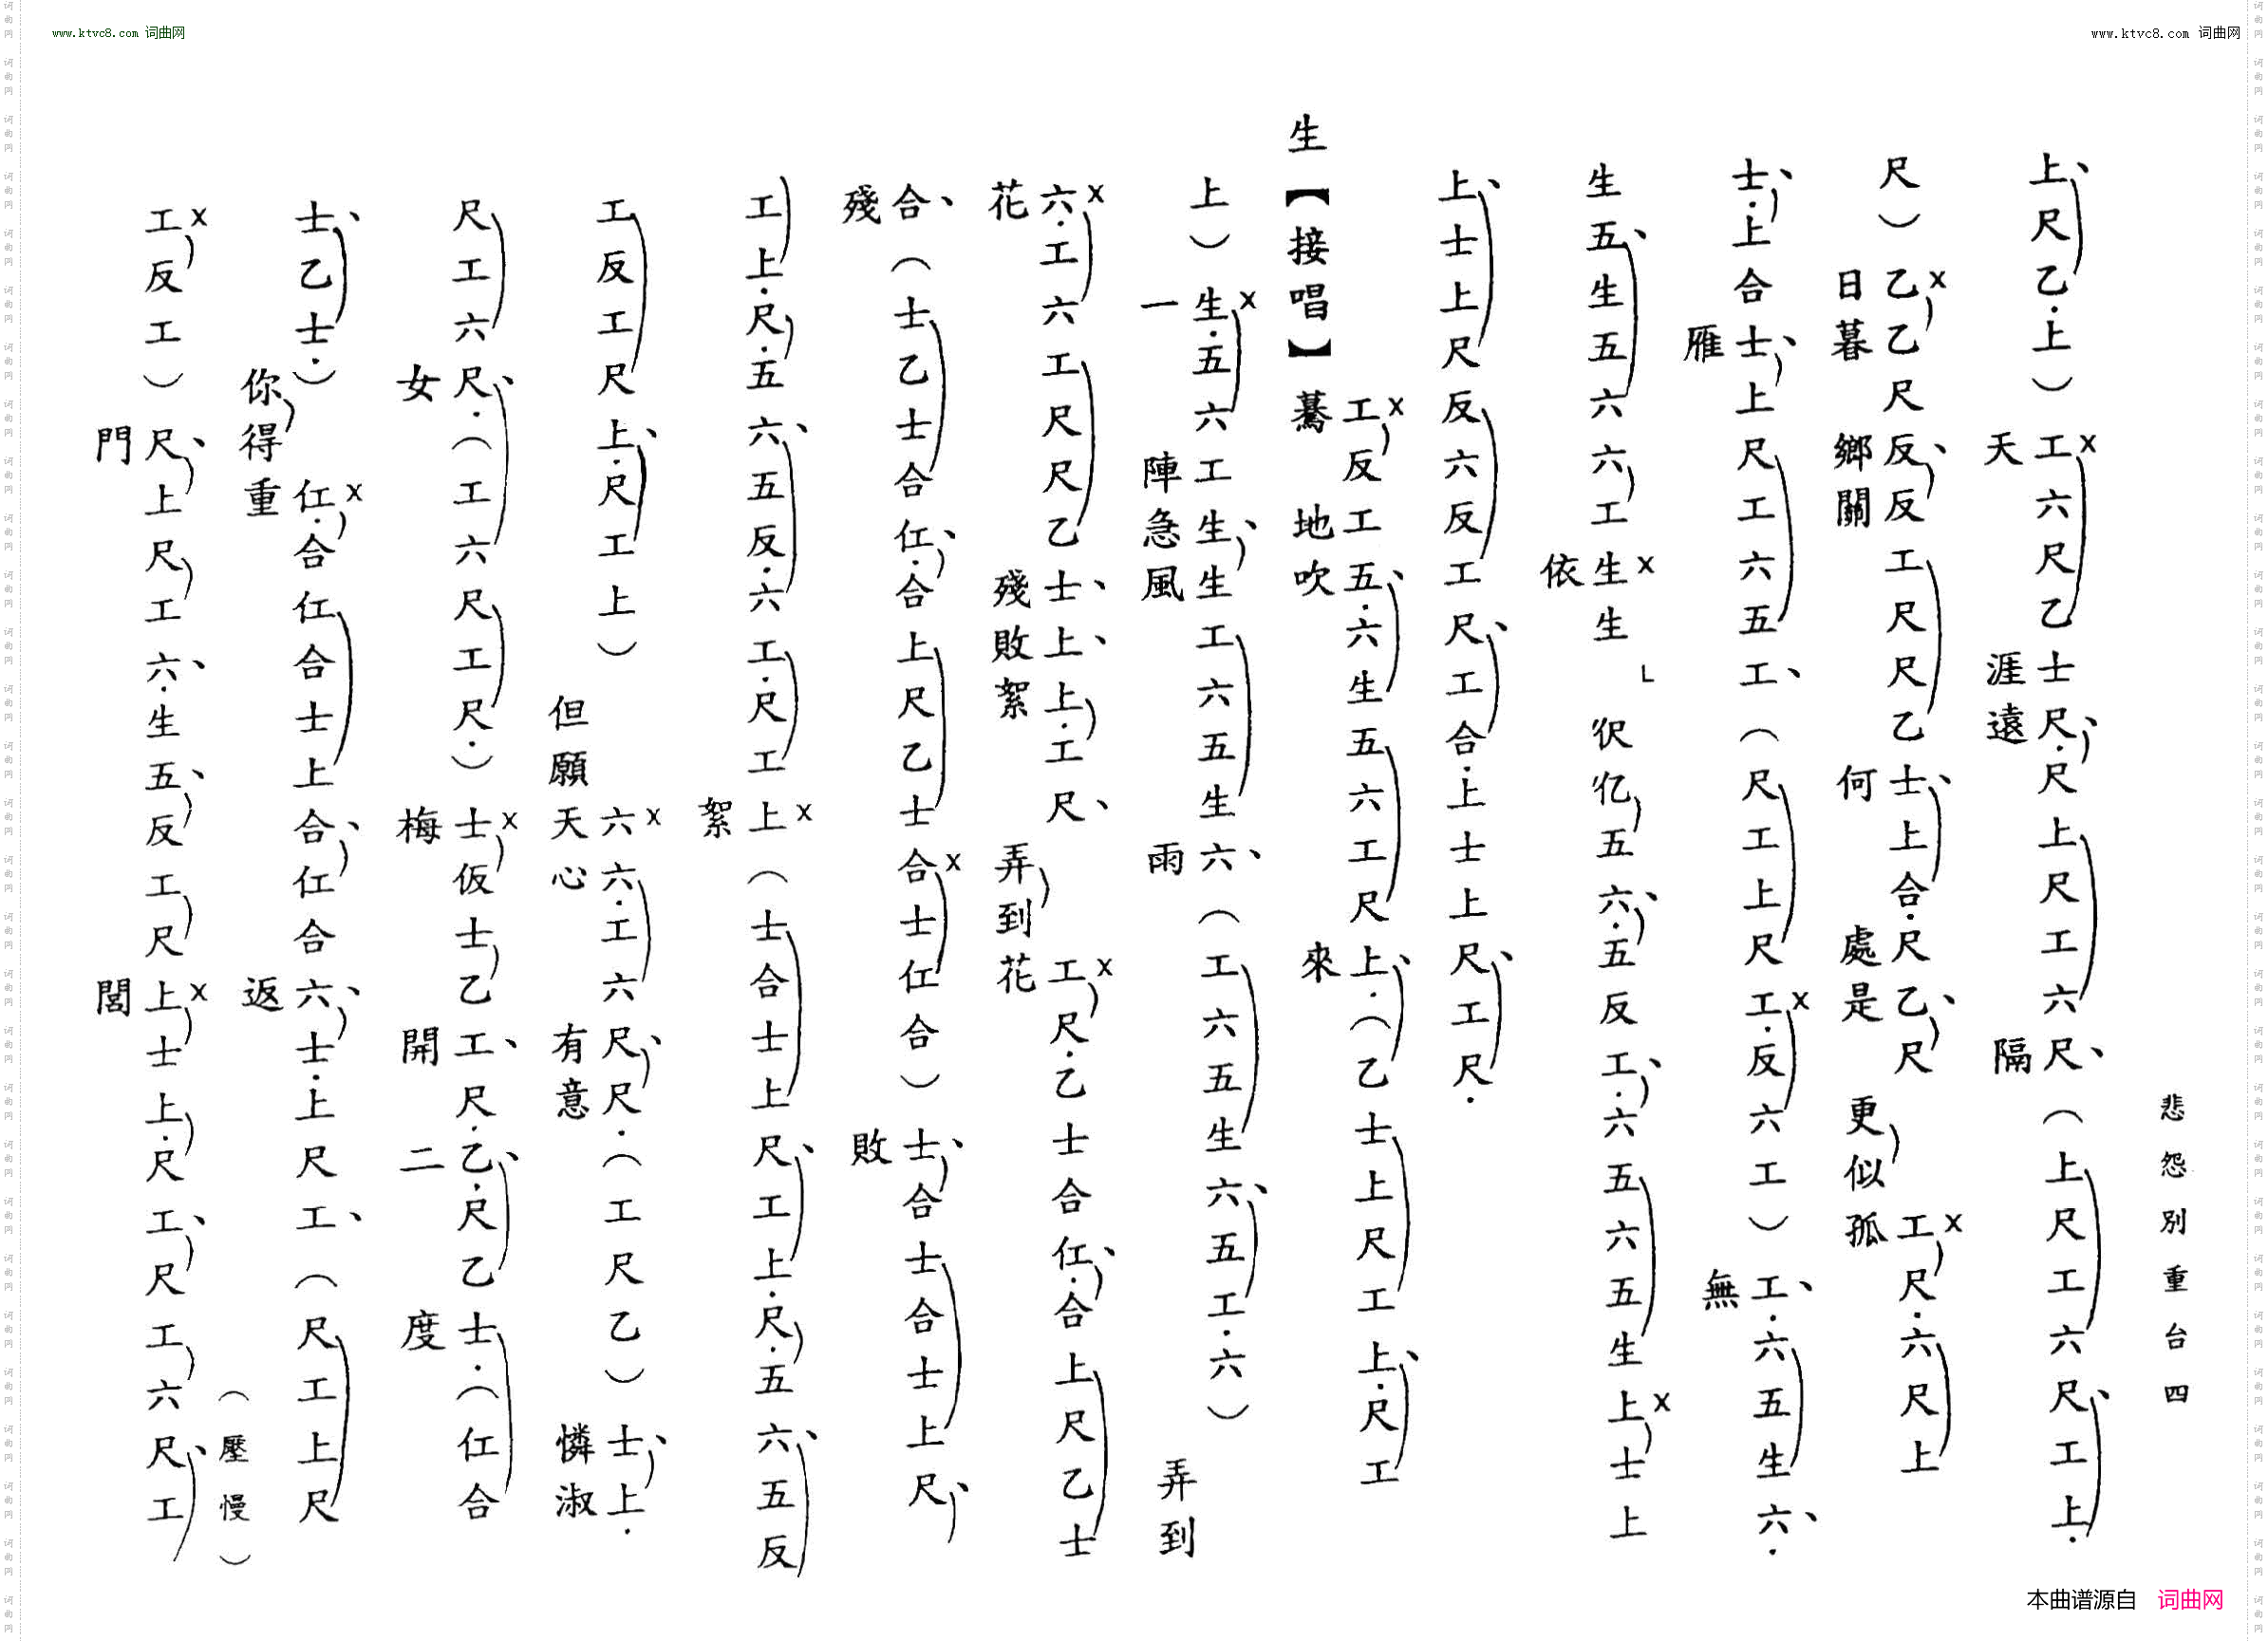 www.ktvc8.com 词曲网
www.ktvc8.com 词曲网
悲怨別重台四
上尺乙上）工六尺乙士尺尺上尺工六尺（上尺工六尺工上
天涯遠隔
尺）乙乙尺反反工尺尺乙士上合尺乙尺工尺六尺上
日暮鄉關何處是更似孤
士上合士上尺工六五工（尺工上尺工反六工）工六五生六
雁無
生五生五六六工生生└伬亿五六五反工六五六五生上士上
依
上士上尺反六反工尺工合上士上尺工尺
生【接唱】工反工五六生五六工尺上（乙士上尺工上尺工
驀地吹來
上）生五六工生生工六五生六（工六五生六五工六）
一陣急風雨弄到
六工六工尺尺乙士上上工尺工尺乙士合仜合上尺乙士
花殘敗絮弄到花
合（士乙士合仜合上尺乙士合士仜合）士合士合士上尺
殘敗
工上尺五六五反六工尺工上（士合士上尺工上尺五六五反
絮
工反工尺上尺工上）六六工六尺尺（工尺乙）士上
但願天心有意憐淑
尺工六尺（工六尺工尺）士仮士乙工尺乙尺乙士（仜合
女梅開二度
士乙士）仜合仜合士上合仜合六士上尺工（尺工上尺
你得重返（壓慢）
工反工）尺上尺工六生五反工尺上士上尺工尺工六尺工
門閭
本曲谱源自 词曲网